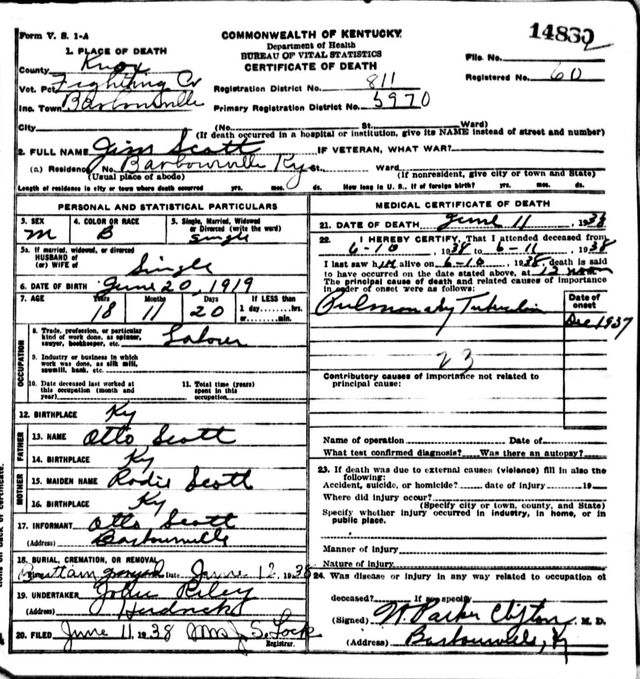 Form V. S. 1-A
COMMONWEALTH OF KENTUCKY
Department of Health
BUREAU OF VITAL STATISTICS
CERTIFICATE OF DEATH
14832
File No.
Registered No. 60
1. PLACE OF DEATH
County Knox
Vot. Pct. Fighting Cr
Inc. Town Barbourville
Registration District No. 811
Primary Registration District No. 5970
City (No. St. Ward)
(If death occurred in a hospital or institution, give its NAME instead of street and number)
2. FULL NAME Jim Scott IF VETERAN, WHAT WAR?
(a) Residence No. Barbourville Ky St., Ward
(Usual place of abode) (If nonresident, give city or town and State)
Length of residence in city or town where death occurred yrs. mos. ds. How long in U. S., if of foreign birth? yrs. mos. ds.
PERSONAL AND STATISTICAL PARTICULARS
3. SEX 4. COLOR OR RACE 5. Single, Married, Widowed or Divorced (write the word)
M B Single
5a. If married, widowed, or divorced
HUSBAND of
(or) WIFE of Single
6. DATE OF BIRTH June 20, 1919
7. AGE Years Months Days If LESS than
18 11 20 1 day hrs.
or min.
OCCUPATION
8. Trade, profession, or particular
kind of work done, as spinner,
sawyer, bookkeeper, etc. Labour
9. Industry or business in which
work was done, as silk mill,
sawmill, bank, etc.
10. Date deceased last worked at
this occupation (month and
year)
11. Total time (years)
spent in this
occupation
12. BIRTHPLACE Ky
FATHER
13. NAME Otto Scott
14. BIRTHPLACE Ky
MOTHER
15. MAIDEN NAME Rodie Scott
16. BIRTHPLACE Ky
17. INFORMANT Otto Scott
(Address) Barbourville
18. BURIAL, CREMATION, OR REMOVAL
Date June 12, 1938
19. UNDERTAKER John Riley
(Address)
20. FILED June 11, 1938 Mrs J. S. Lock
Registrar.
MEDICAL CERTIFICATE OF DEATH
21. DATE OF DEATH June 11, 1938
22. I HEREBY CERTIFY, That I attended deceased from
6-10, 1938 to 6-11, 1938
I last saw him alive on 6-10, 1938, death is said
to have occurred on the date stated above, at 12 noon
The principal cause of death and related causes of importance
in order of onset were as follows:
Date of
onset
Pulmonary Dec 1937
23
Contributory causes of importance not related to
principal cause:
Name of operation Date of
What test confirmed diagnosis? Was there an autopsy?
23. If death was due to external causes (violence) fill in also the
following:
Accident, suicide, or homicide? date of injury 19
Where did injury occur?
(Specify city or town, county, and State)
Specify whether injury occurred in industry, in home, or in
public place.
Manner of injury
Nature of injury
24. Was disease or injury in any way related to occupation of
deceased? If so, specify
(Signed) W. Parker Clifton M. D.
(Address) Barbourville, Ky